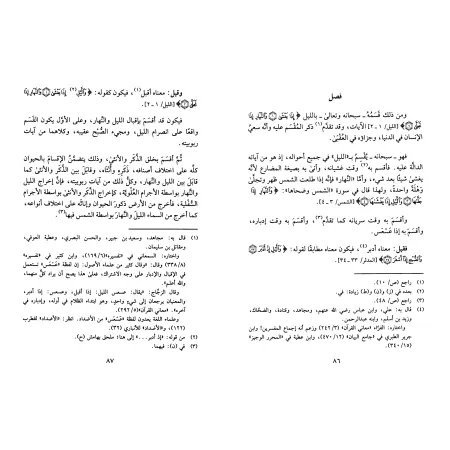 فصل
ومن ذلك قَسَمُهُ ـ سبحانه وتعالىٰ ـ بالليل ﴿وَٱلَّيْلِ إِذَا يَغْشَىٰ ۝ وَٱلنَّهَارِ إِذَا
تَجَلَّىٰ ۝﴾ [الليل/ ١ ـ ٢] الآيات، وقد تقدَّم(١) ذكر المُقْسَم عليه وأنَّه سعيُ
الإنسان في الدنيا، وجزاؤه في العُقْبَىٰ.
فهو ـ سبحانه ـ يُقْسِمُ بـ«الليل» في جميع أحواله، إذ هو من آياته
الدالَّة عليه. فأقسم به(٢) وقت غشيانه، وأتىٰ به بصيغة المضارع لأنَّه
يغشىٰ شيئًا بعد شيءٍ، وأمَّا «النَّهار» فإنَّه إذا طلعت الشمس ظهر وتجلَّىٰ
وَهْلَةً واحدةً، ولهذا قال في سورة «الشمس وضحاها»: ﴿وَٱلنَّهَارِ إِذَا
جَلَّىٰهَا ۝ وَٱلَّيْلِ إِذَا يَغْشَىٰهَا ۝﴾ [الشمس/ ٣ ـ ٤].
وأقسم به وقت سريانه كما تقدَّم(٣)، وأقسم به وقت إدباره،
وأقسم به إذا عَسْعَسَ.
فقيل: معناه أدبر(٤)، فيكون معناه مطابقًا لقوله: ﴿وَٱلَّيْلِ إِذْ أَدْبَرَ ۝
وَٱلصُّبْحِ إِذَآ أَسْفَرَ ۝﴾ [المدثر/ ٣٣ ـ ٣٤].
(١) راجع (ص/ ١٠).
(٢) بعده في (ز) و(ن) و(ط) زيادة: في.
(٣) راجع (ص/ ٤٨).
(٤) قال به: علي، وابن عباس رضي الله عنهم، ومجاهد، وقتادة، والضحَّاك،
وزيد بن أسلم، وابنه عبدالرحمن.
واختاره: الفرَّاء «معاني القرآن» (٣/ ٢٤٢) وزعم أنه إجماع المفسرين! وابن
جرير الطبري في «جامع البيان» (١٢/ ٤٧٠)، وابن عطية في «المحرر الوجيز»
(١٥/ ٣٤٠).
٨٦
وقيل: معناه أقبل(١)، فيكون كقوله: ﴿وَٱلَّيْلِ(٢) إِذَا يَغْشَىٰ ۝ وَٱلنَّهَارِ إِذَا
تَجَلَّىٰ ۝﴾ [الليل/ ١ ـ ٢].
فيكون قد أقسمَ بإقبال الليل والنَّهار، وعلى الأوَّل يكون القَسَم
واقعًا علىٰ انصرام الليل، ومجيء الصُّبْح عقيبه، وكلاهما من آيات
ربوبيته.
ثُمَّ أقسم بخلق الذَّكَر والأنثىٰ، وذلك يتضمَّنُ الإقسامَ بالحيوان
كلِّه علىٰ اختلاف أصنافه، ذَكَرِه وأُنْثَاه، وقابَلَ بين الذَّكَر والأنثىٰ كما
قابَلَ بين الليل والنَّهار، وكلُّ ذلك من آيات ربوبيته، فإنَّ إخراج الليل
والنَّهار بواسطة الأجرام العُلْويَّة، كإخراج الذَّكَر والأنثىٰ بواسطة الأجرام
السُّفْلية، فأخرج من الأرض ذكورَ الحيوان وإناثَه علىٰ اختلاف أنواعه،
كما أخرج من السماء الليلَ والنَّهارَ بواسطة الشمس فيها(٣).
(١) قال به: مجاهد، وسعيد بن جبير، والحسن البصري، وعطية العوفي،
ومقاتل بن سليمان.
واختاره: السمعاني في «تفسيره» (٦/ ١٦٩)، وابن كثير في «تفسيره»
(٨/ ٣٣٨) وقال: «وقال كثير من علماء الأصول: إن لفظة «عَسْعَس» تستعمل
في الإقبال والإدبار على وجه الاشتراك، فعلىٰ هذا يصح أن يراد كلٌّ منهما،
والله أعلم».
وقال الزجَّاج: «يقال: عسعس الليل: إذا أقبل، وعسعس: إذا أدبر،
والمعنيان يرجعان إلىٰ شيءٍ واحد، وهو ابتداء الظلام في أوله، وإدباره في
آخره». «معاني القرآن» (٥/ ٢٩٢).
وعلماء اللغة يعدون لفظة «عَسْعَس» من الأضداد. انظر: «الأضداد» لقطرب
(١٢٢)، و«الأضداد» للأنباري (٣٢).
(٢) من قوله: «إذ أدبر...» إلىٰ هنا؛ ملحق بهامش (ح).
(٣) في (ن): فيهما.
٨٧